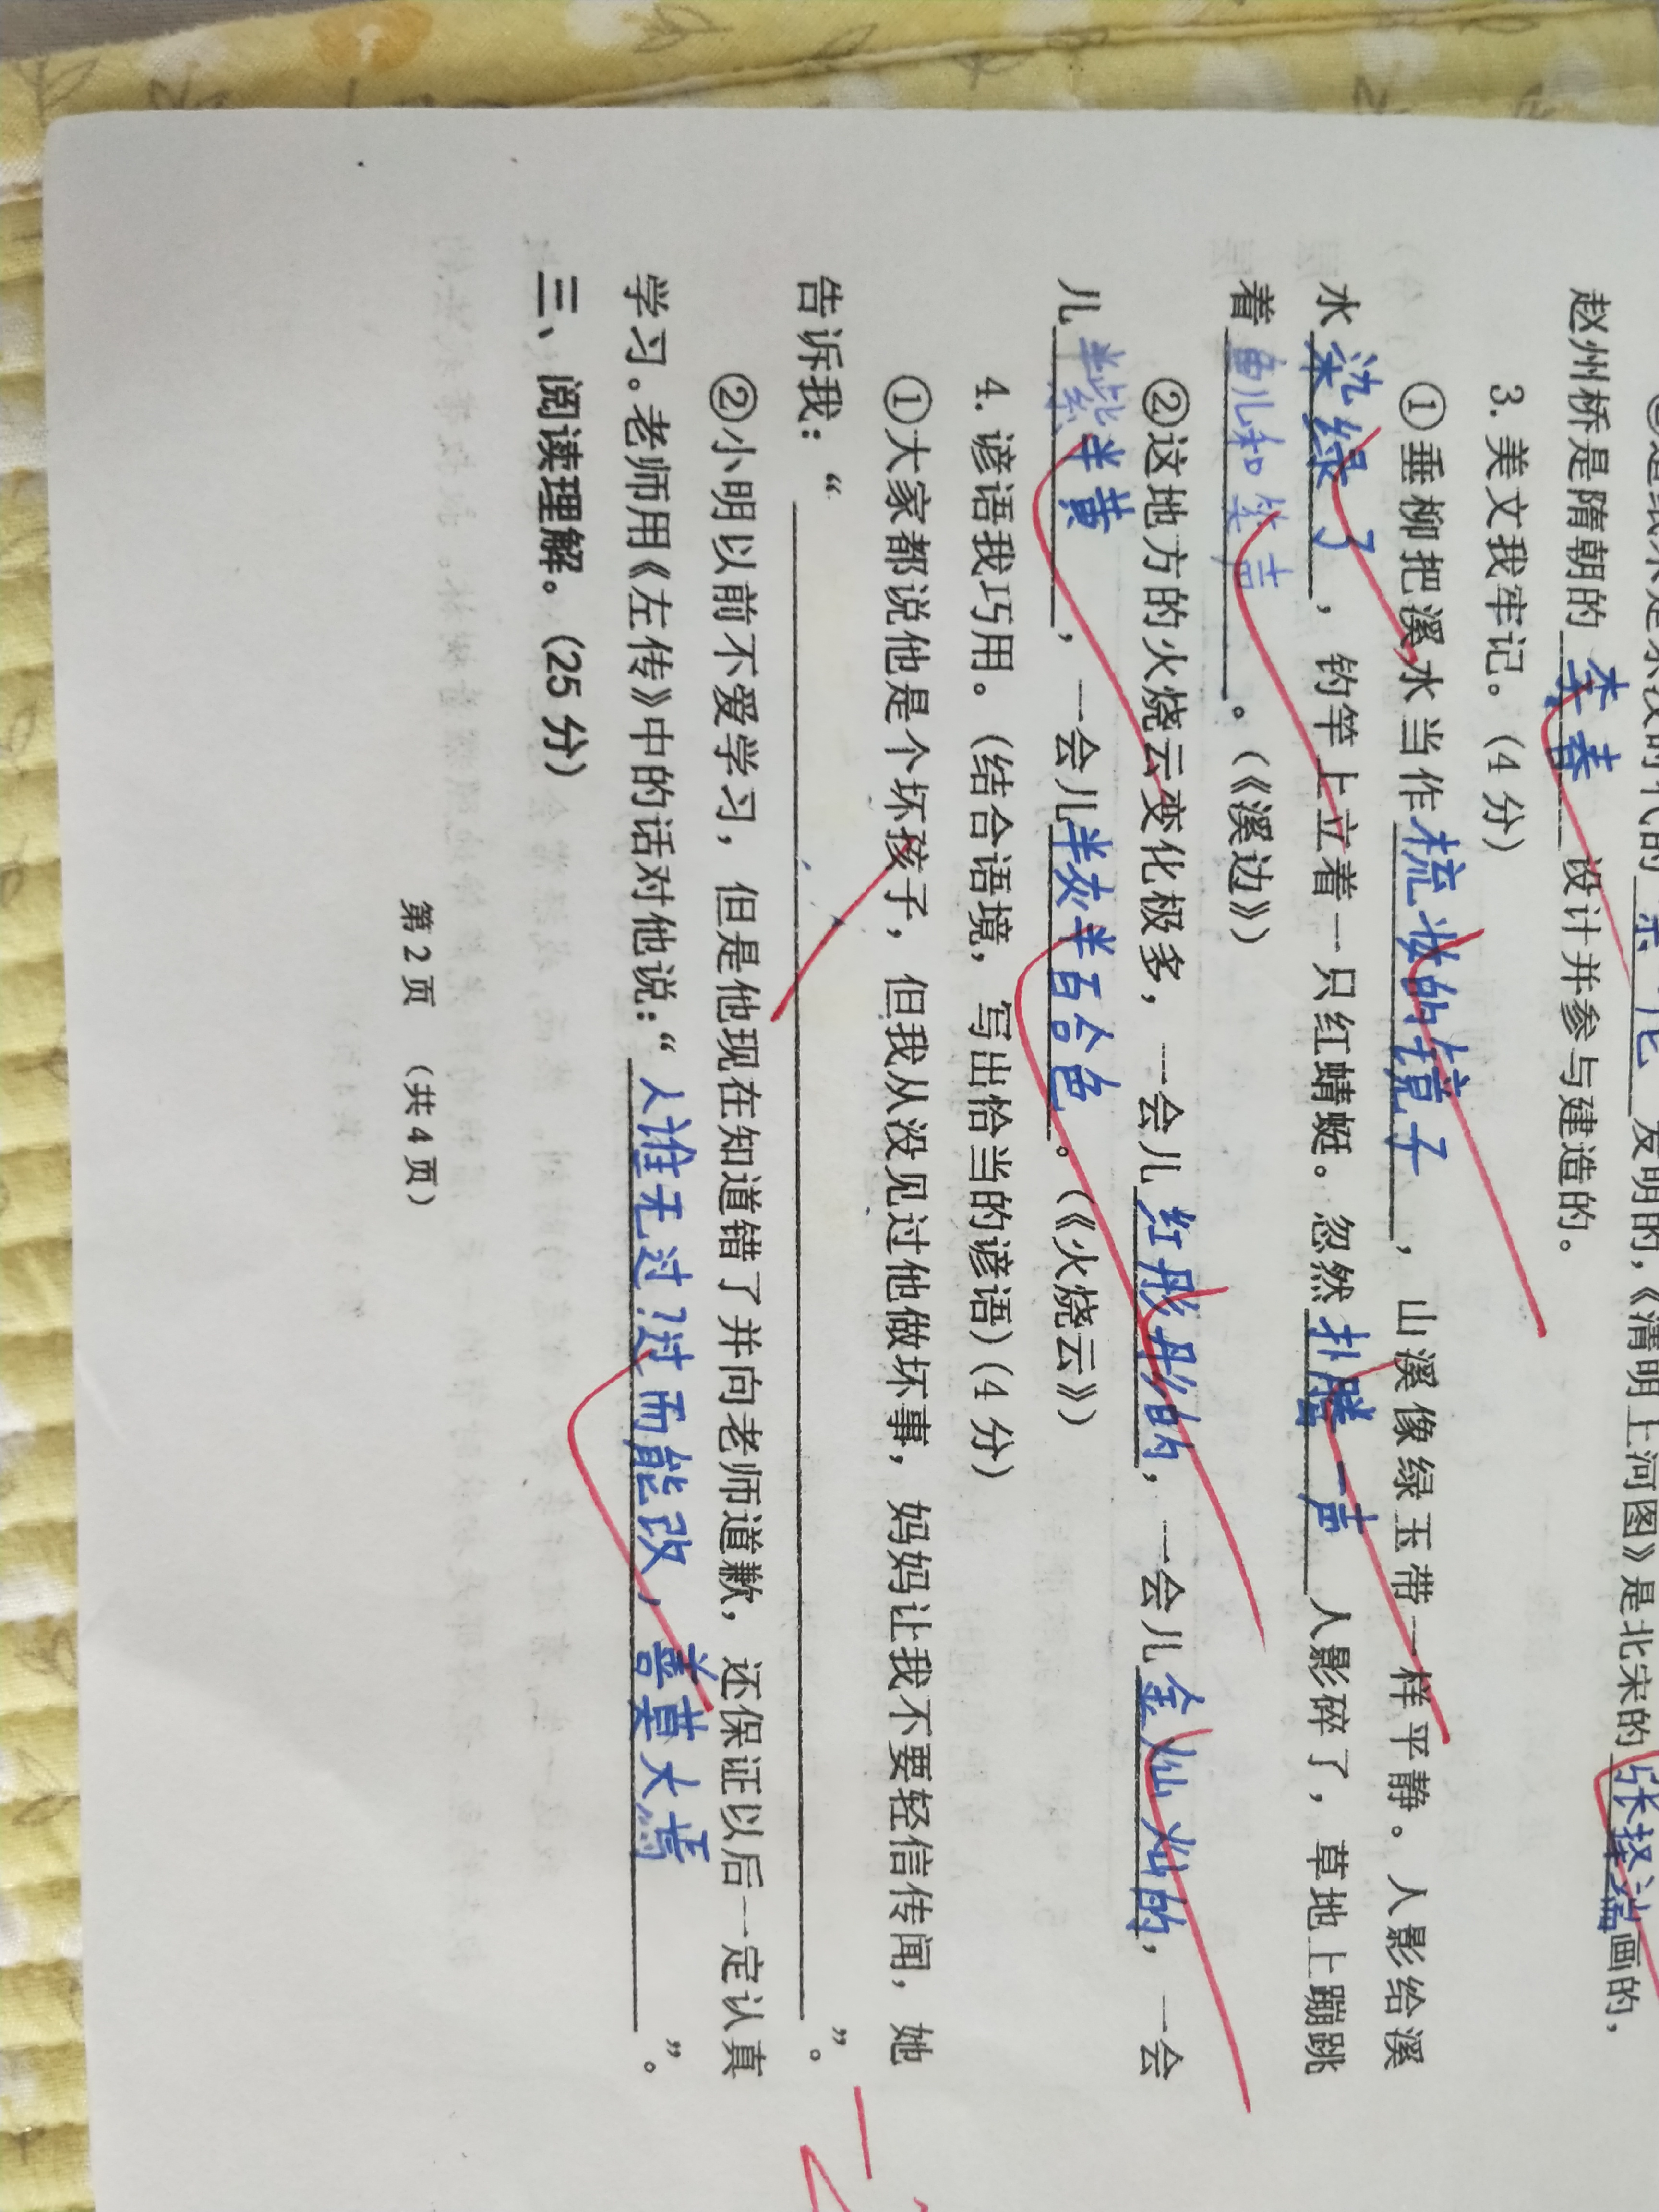 赵州桥是隋朝的李春设计并参与建造的。
3. 美文我牢记。(4 分)
①垂柳把溪水当作梳妆的镜子,山溪像绿玉带一样平静。人影给溪
水染绿了,钓竿上立着一只红蜻蜓。忽然扑腾一声人影碎了,草地上蹦跳
着鱼儿和笑声。(《溪边》)
②这地方的火烧云变化极多,一会儿红彤彤的,一会儿金灿灿的,一会
儿半紫半黄,一会儿半灰半百合色。(《火烧云》)
4. 谚语我巧用。(结合语境,写出恰当的谚语)(4 分)
①大家都说他是个坏孩子,但我从没见过他做坏事,妈妈让我不要轻信传闻,她
告诉我:“”。
②小明以前不爱学习,但是他现在知道错了并向老师道歉,还保证以后一定认真
学习。老师用《左传》中的话对他说:“人谁无过?过而能改,善莫大焉”。
三、阅读理解。(25 分)
第 2 页 (共 4 页)